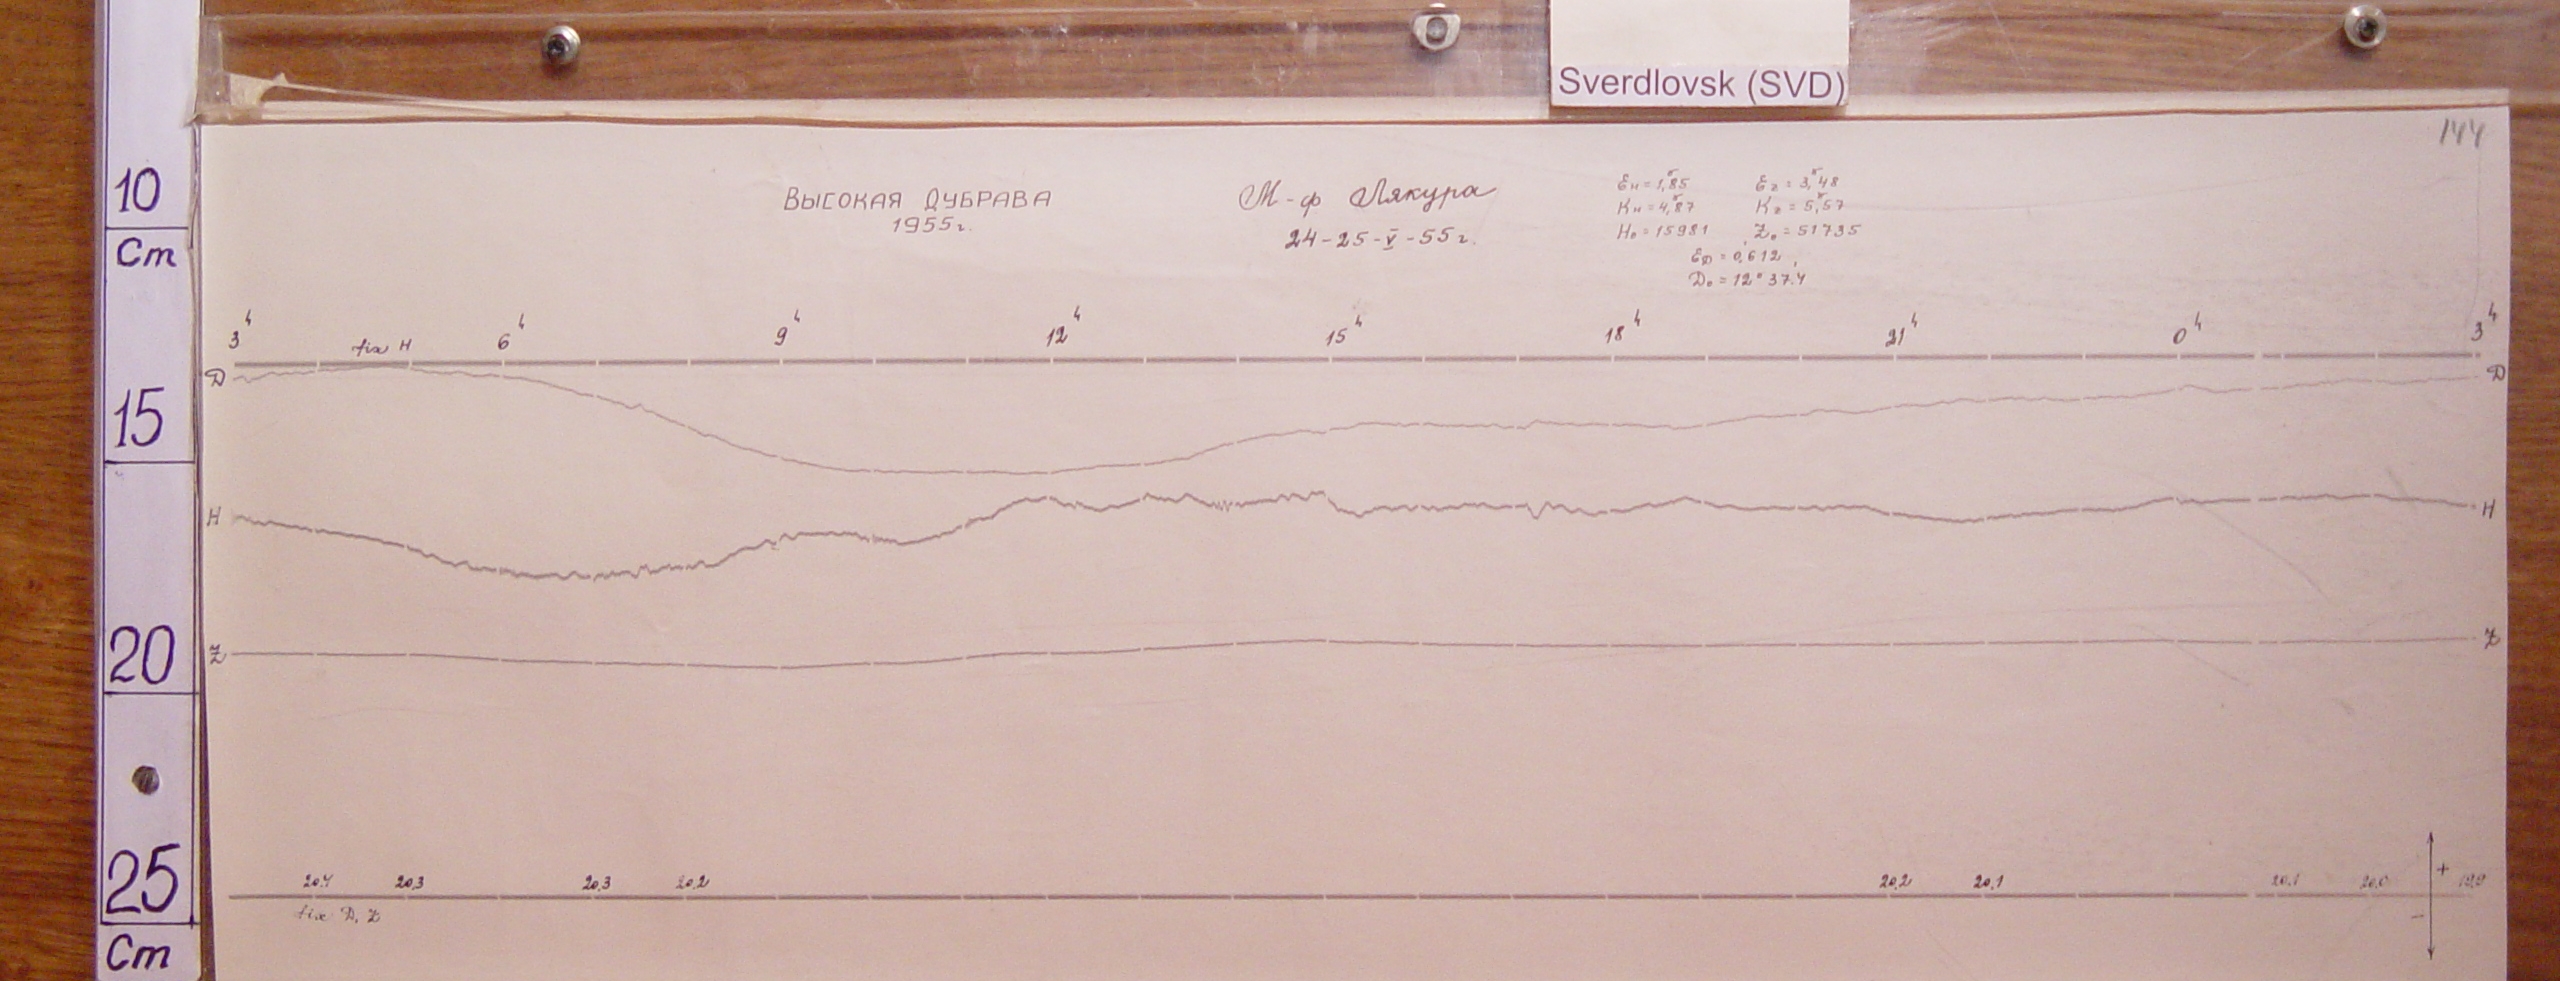 Sverdlovsk (SVD)
144
10
Cm
15
20
25
Cm
ВЫСОКАЯ ДУБРАВА
1955г.
М-ф Лякура
24-25-V-55г.
Ɛн=1,85 Ɛz=3,48
Kн=4,87 Kz=5,57
H₀=15981 Z₀=51735
ƐD=0,612
D₀=12°37.4
3ч fix H 6ч 9ч 12ч 15ч 18ч 21ч 0ч 3ч
D D
H H
Z Z
20.4 20,3 20,3 20,2 20,2 20,1 20,1 20,0 19,9
fix D, Z
+
−